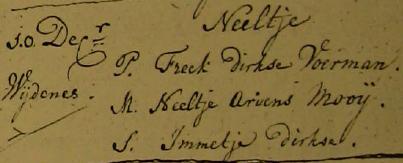 Neeltje
s.o. Decr
P. Freek Dirkse Voerman.
Wijdenes.
M. Neeltje Ariens Mooij.
S. Immetje Dirkse.